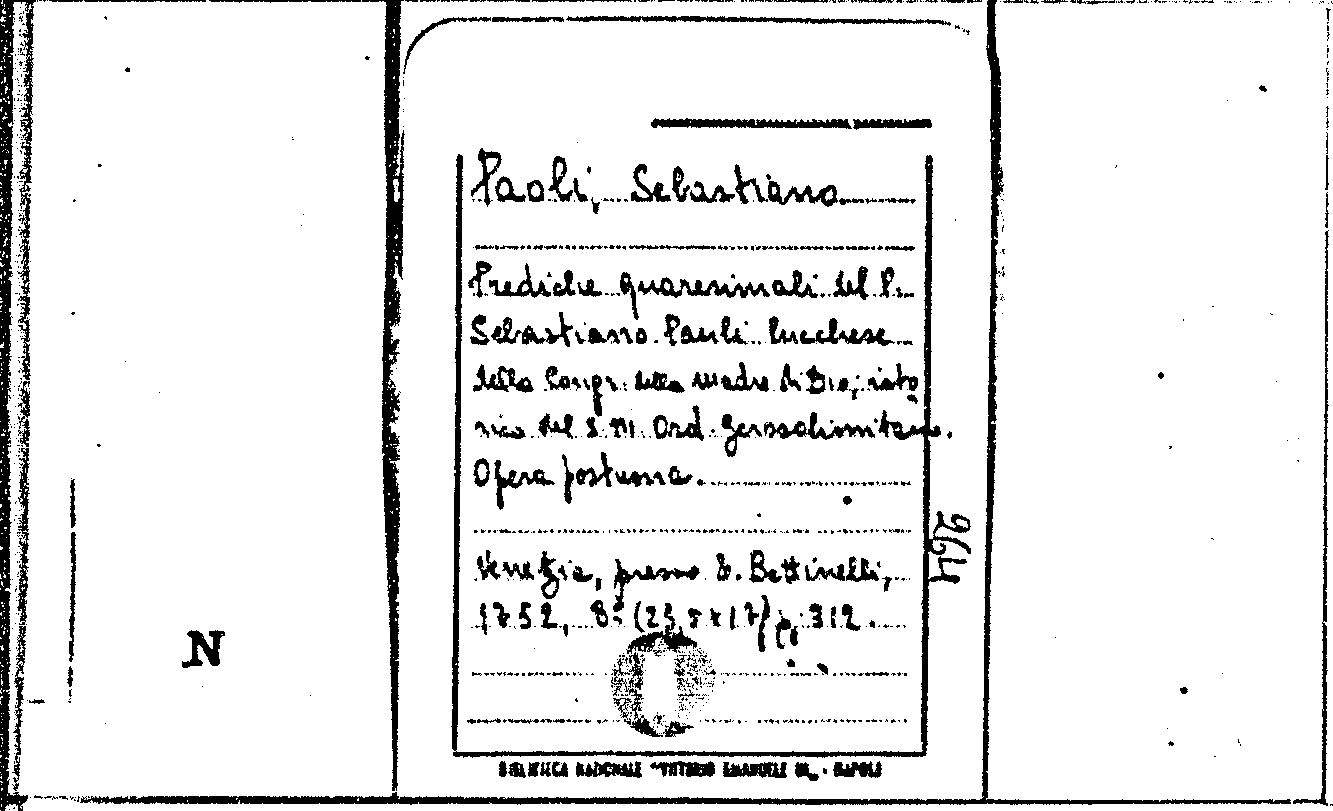 Paoli, Sebastiano
Prediche quaresimali del P.
Sebastiano Pauli lucchese
della Congr. della Madre di Dio, isto
rico del S. M. Ord. Gerosolimitano.
Opera postuma.
Venezia, presso T. Bettinelli,
1752, 8° (23,5x17) p. 312.
264
N
BIBLIOTECA NAZIONALE "VITTORIO EMANUELE III" - NAPOLI